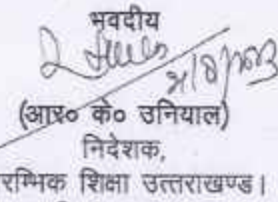 भवदीय
(आर० के० उनियाल)
निदेशक,
रम्भिक शिक्षा उत्तराखण्ड।